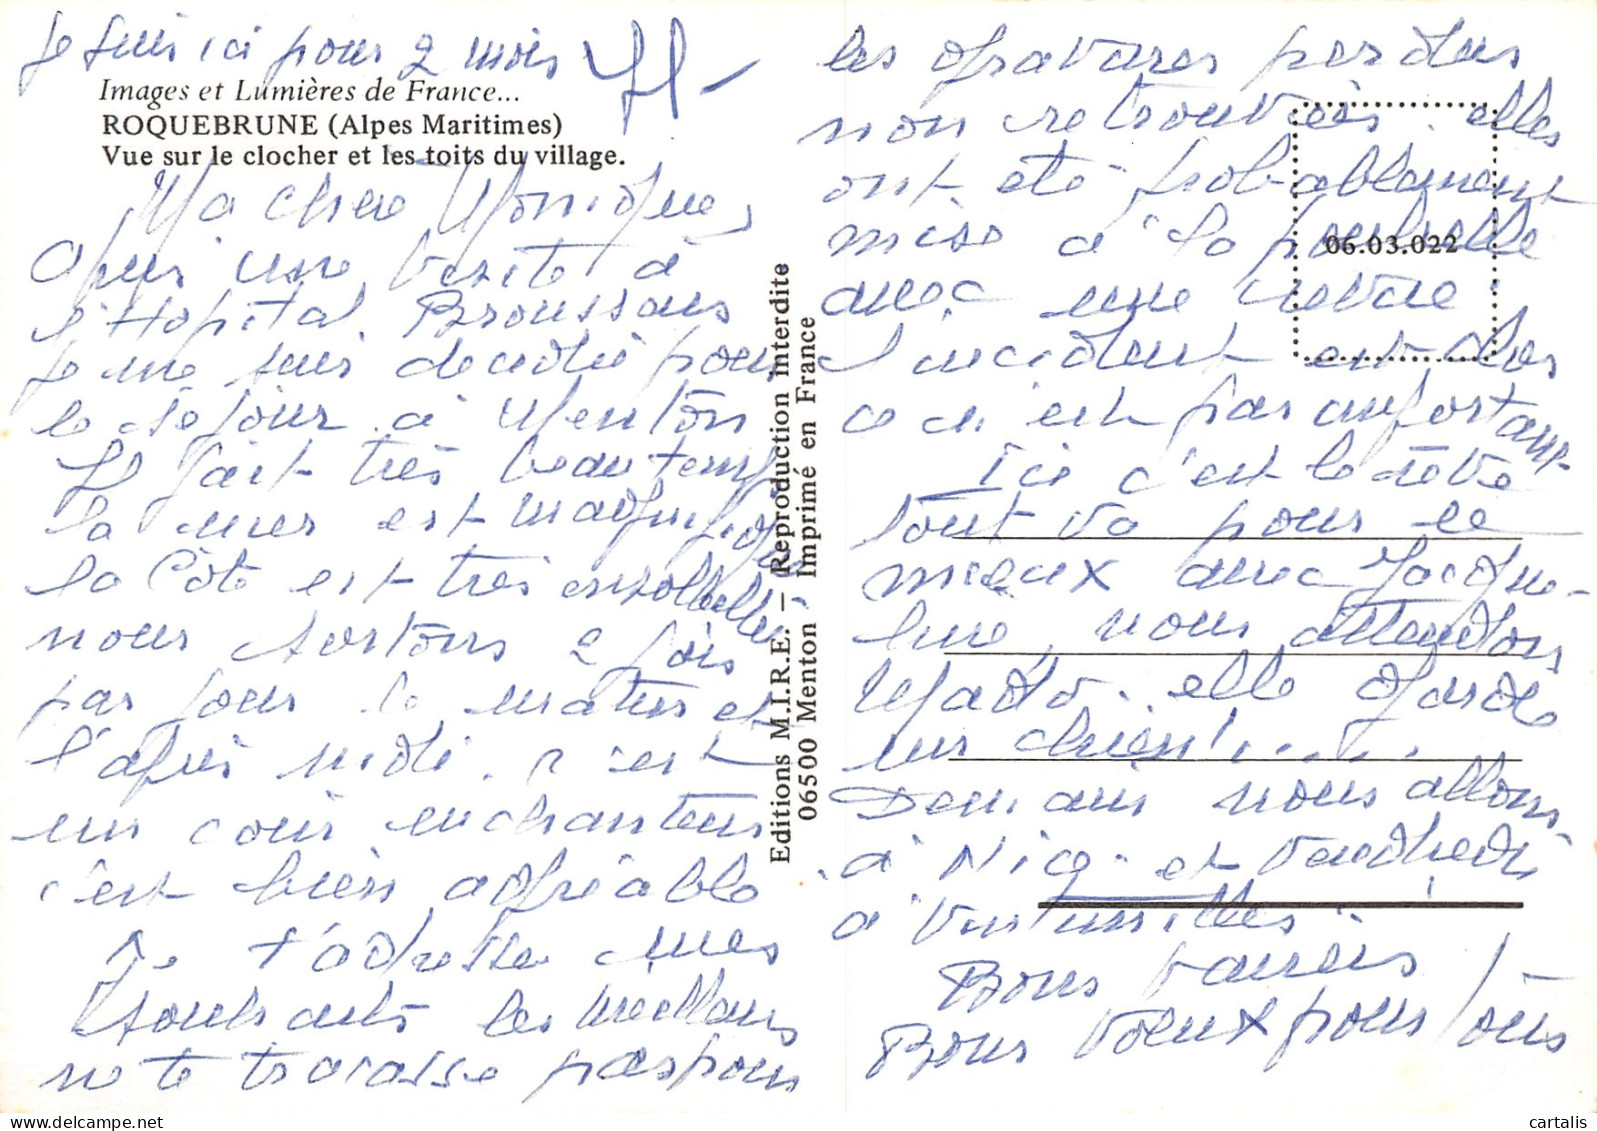 Je suis ici pour 2 mois
Images et Lumières de France...
ROQUEBRUNE (Alpes Maritimes)
Vue sur le clocher et les toits du village.
Ma chère Monique,
Après une visite à
l'Hopital Broussais
je me suis décidée pour
le séjour à Menton
Il fait très beau temps
la mer est magnifique
la Côte est très ensoleillée
nous sortons 2 fois
par jour le matin et
l'après midi. c'est
un coin enchanteur
c'est bien agréable
Je t'adresse mes
souhaits les meilleurs
ne te tracasse pas pour
les gravures perdues
non retrouvées. elles
ont été probablement
mise à la poubelle
avec une revue.
L'incident est clos
ceci est pas important
Ici c'est le rêve
tout va pour le
mieux avec Jacque-
line, nous attendons
Mado. elle garde
un chien!......
Demain nous allons
à Nice. et Vendredi
à Vintimilles.
Bons baisers
Bons voeux pour tous
06.03.022
Editions M.I.R.E. – Reproduction interdite
06500 Menton - Imprimé en France
cartalis